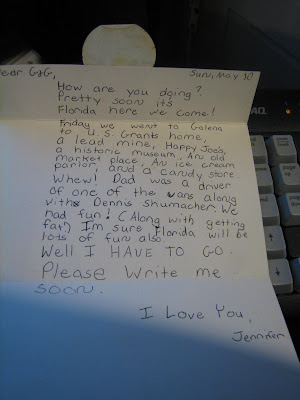 Dear G&G,
Sun, May 10
How are you doing?
Pretty soon its
Florida here we come!
Friday we went to Galena
to U.S. Grants home,
a lead mine, Happy Joe's,
a historic museum, An old
market place, An ice cream
parlor and a candy store
Whew! Dad was a driver
of one of the vans along
with Dennis Shumacher. We
had fun! (Along with getting
fat) I'm sure Florida will be
lots of fun also.
Well I HAVE TO GO.
Please Write me
soon.
I Love You,
Jennifer